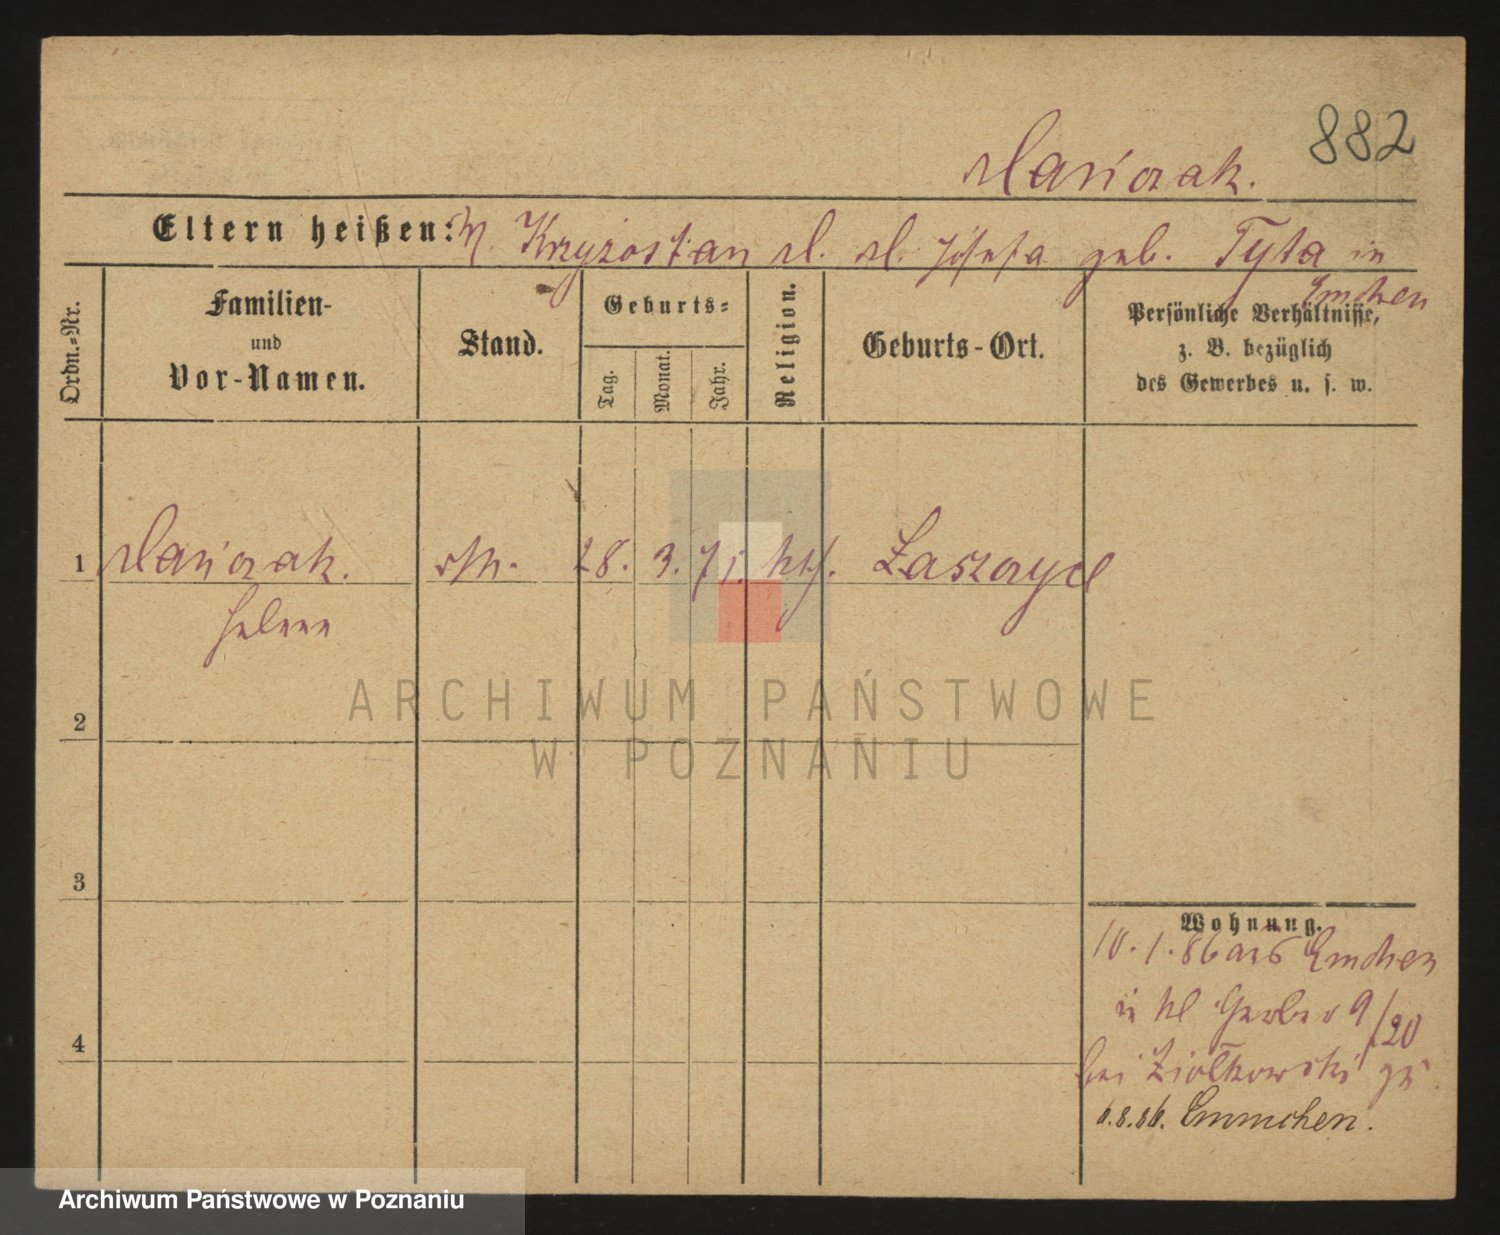 882
Marciczak.
Eltern heißen: M. Krzyzostan M. M. Josefa geb. Tyta in
Emchen
Ordn.-Nr.
Familien-
und
Vor-Namen.
Stand.
Geburts-
Tag.
Monat.
Jahr.
Religion.
Geburts-Ort.
Persönliche Verhältnisse,
z. B. bezüglich
des Gewerbes u. s. w.
1
28. 3. 71. kth. Zaszczyd
Helene
2
3
4
Wohnung.
10. 1. 86 aus Emchen
in kl Gerber 9/20
bei Ziólkowski
6.8.86. Emmchen.
ARCHIWUM PAŃSTWOWE
W POZNANIU
Archiwum Państwowe w Poznaniu